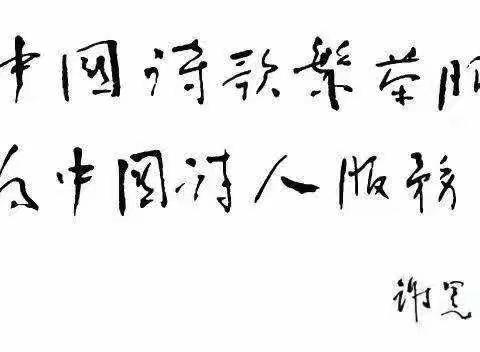 中國诗歌繁荣
为中國诗人服務
谢冕